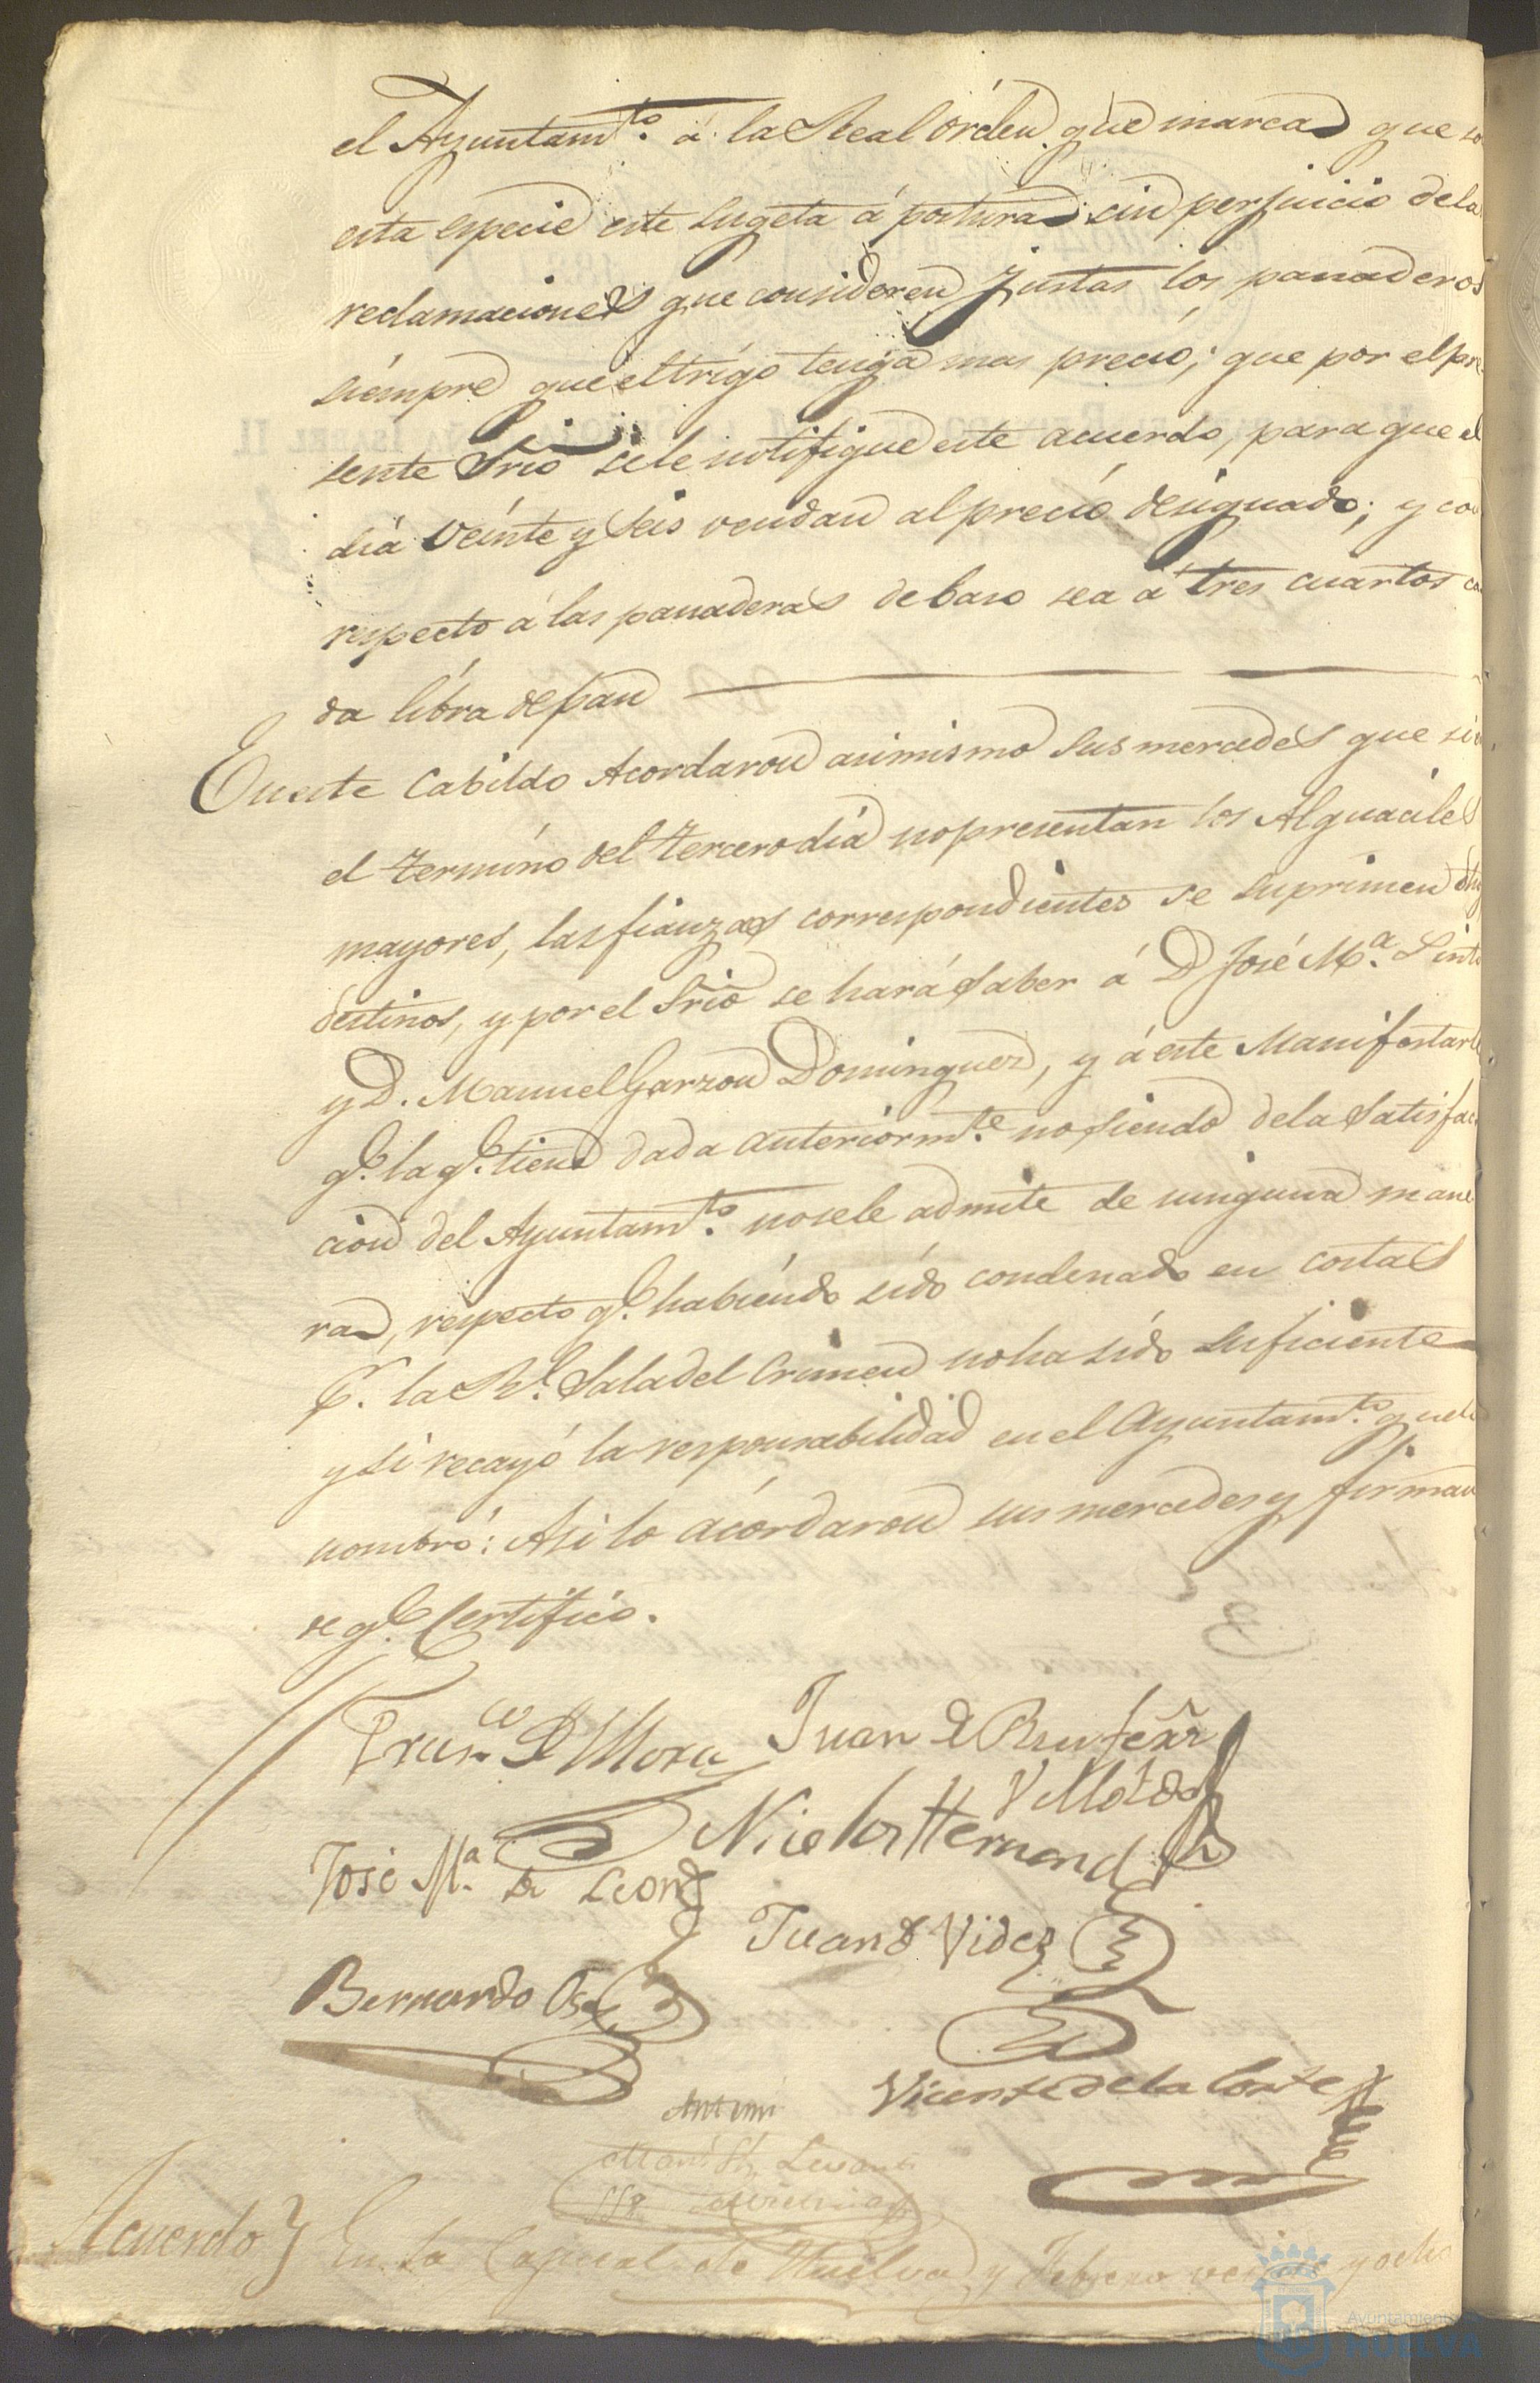 el Ayuntam.to á la Real órden que marca que
esta especie este sugeta á postura sin perjuicio de la
reclamaciones que consideren justas los panaderos
siémpre que el trigo tenga mas preció; que por el pre
sente Srio se le notifique este acuerdo, para que el
día veinte y seis vendan al preció designado; y co
respecto á las panaderas de baso sea á tres cuartos ca
da líbra de pan
En este Cabildo Acordaron asimismo sus mercedes que si
el termíno del tercero día no presentan los Alguaciles
mayores, las fianzas correspondientes se suprimen
destinos, y por el Srio se hará saber á D José M.a
y D. Manuel Garzon Dominguez, y á este Manifestar
q.e la q.e tiene dada anteriorm.te no siendo de la satisfac
cion del Ayuntam.to no se le admite de ninguna mane
ra, respecto q.e habiéndo sído condenado en costas
P.r la R.l Sala del Crimen no ha sído suficiente
y si recayó la responsabilidad en el Ayuntam.to que
nombró: Asi lo acórdaron sus mercedes y firman
de q.e Certifico.
Fran.co de Mora Juan
Nicolas Hernand
José M.a de Leon
Juan de Vides
Bernardo
Vicente de la Corte
Antemi
Acuerdo En la Capital de Huelva y Febrero veinte y ocho
Ayuntamiento
HUELVA